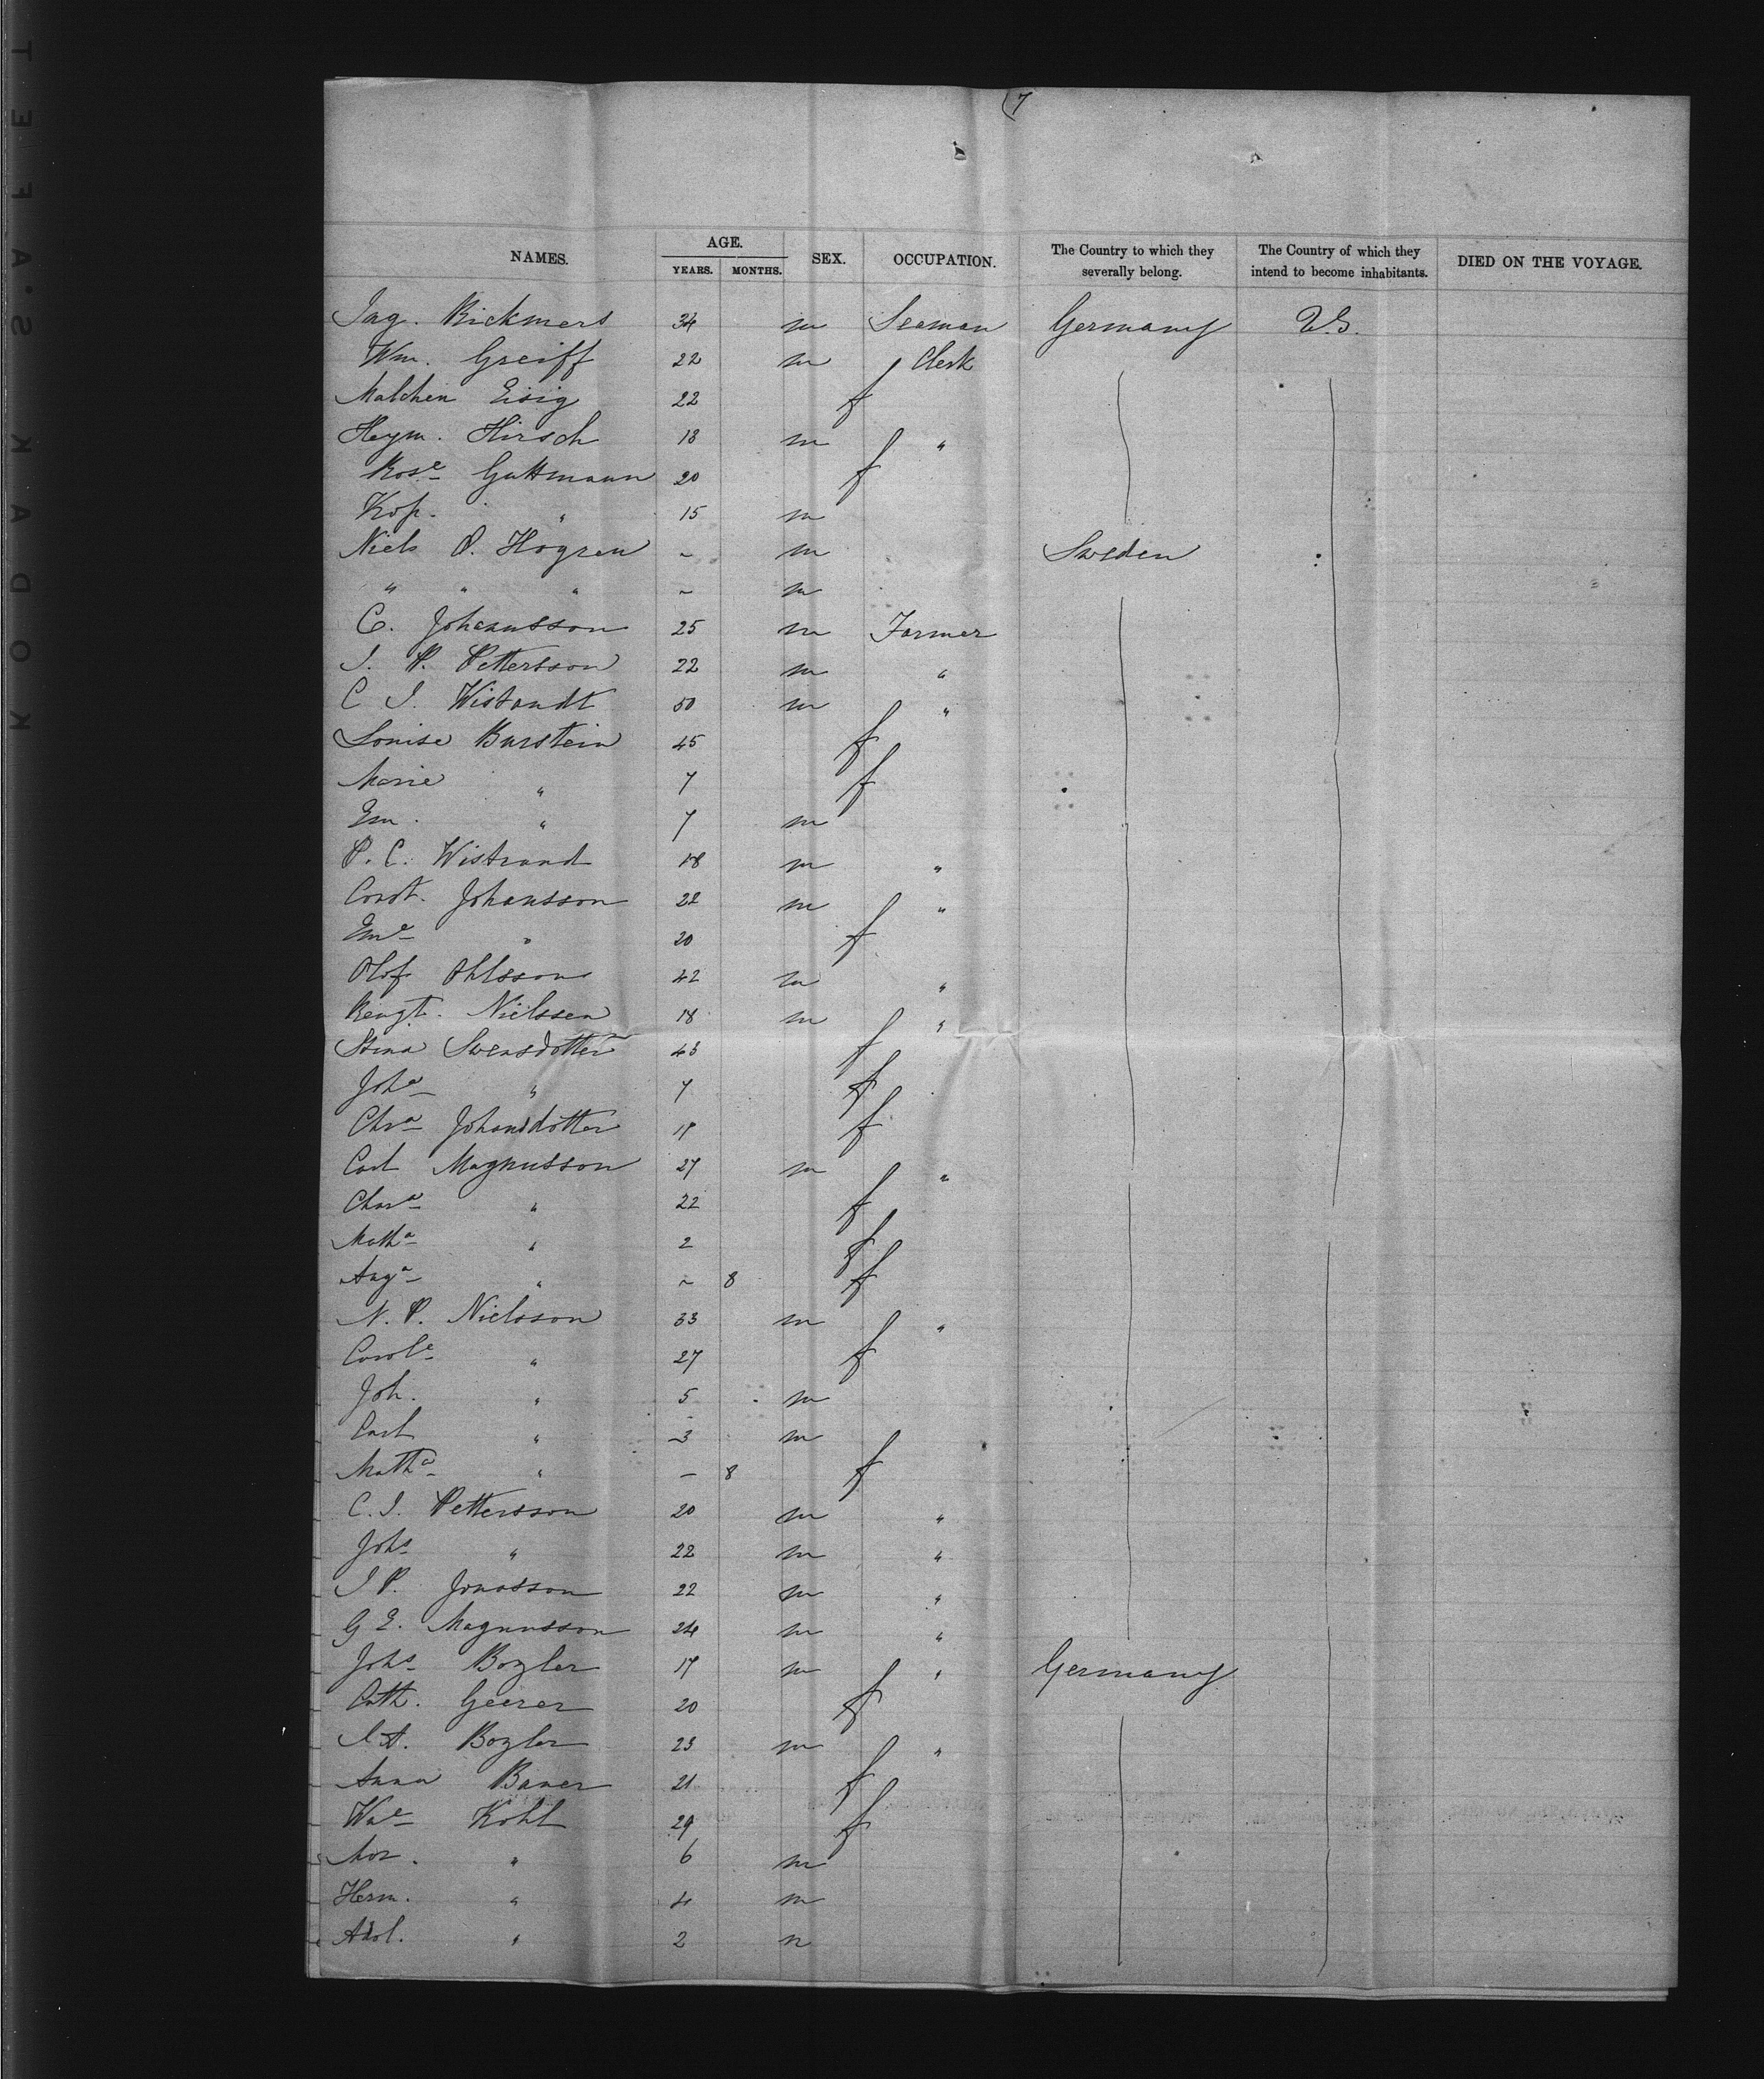 KODAK·SAFETY
7
NAMES. AGE. YEARS. MONTHS. SEX. OCCUPATION. The Country to which they severally belong. The Country of which they intend to become inhabitants. DIED ON THE VOYAGE.
Jag. Rickmers 34 m Seaman Germany U.S.
Wm. Greiff 22 m Clerk
Malchen Eisig 22 f
Heym. Hirsch 18 m "
Rose Guttmann 20 f
Kop. " 15 m
Niels P. Hogren ~ m Sweden
" " " ~ m
C. Johansson 25 m Farmer
J. P. Pettersson 22 m "
C J. Wistandt 50 m "
Louise Burstein 45 f
Marie " 7 f
Em. " 7 m
P. C. Wistrand 18 m "
Const. Johansson 22 m "
Eme " 20 f
Olof Ohlsson 42 m "
Bengt. Nielssen 18 m "
Stina Swensdotter 43 f
Joha " 7 f
Chra Johansdotter 19 f
Carl Magnusson 27 m "
Chara " 22 f
Matha " 2 f
Auga " ~ 8 f
N. P. Nielsson 33 m "
Carole " 27 f
Joh. " 5 m
Carl " 3 m
Matha " – 8 f
C. J. Pettersson 20 m "
Johs " 22 m "
J P. Jonasson 22 m "
G E. Magnusson 24 m "
Johs Bozler 17 m " Germany
Cath. Geerer 20 f
A. Bozler 23 m "
Anna Bauer 21 f
Kohl 29 f
" 6 m
Herm. " 4 m
Adol. " 2 m